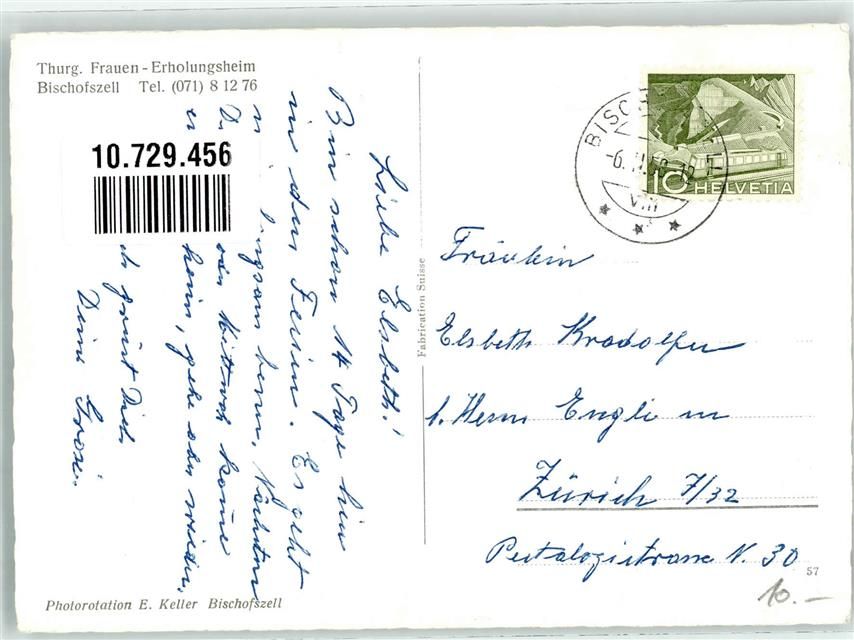 Thurg. Frauen-Erholungsheim
Bischofszell Tel. (071) 8 12 76
10.729.456
Liebe Elsbeth!
Bin schon 14 Tage hier
in den Ferien. Es geht
Nächsten
oder Mittwoch komme
heim, gehe aber wieder.
grüsst Dich
Deine
Fabrication Suisse
BISCH
VIII
10 HELVETIA
Fräulein
Elsbeth Kradolfer
b. Herrn Engli
Zürich 7/32
Pestalozzistrasse N. 30
57
10.-
Photorotation E. Keller Bischofszell